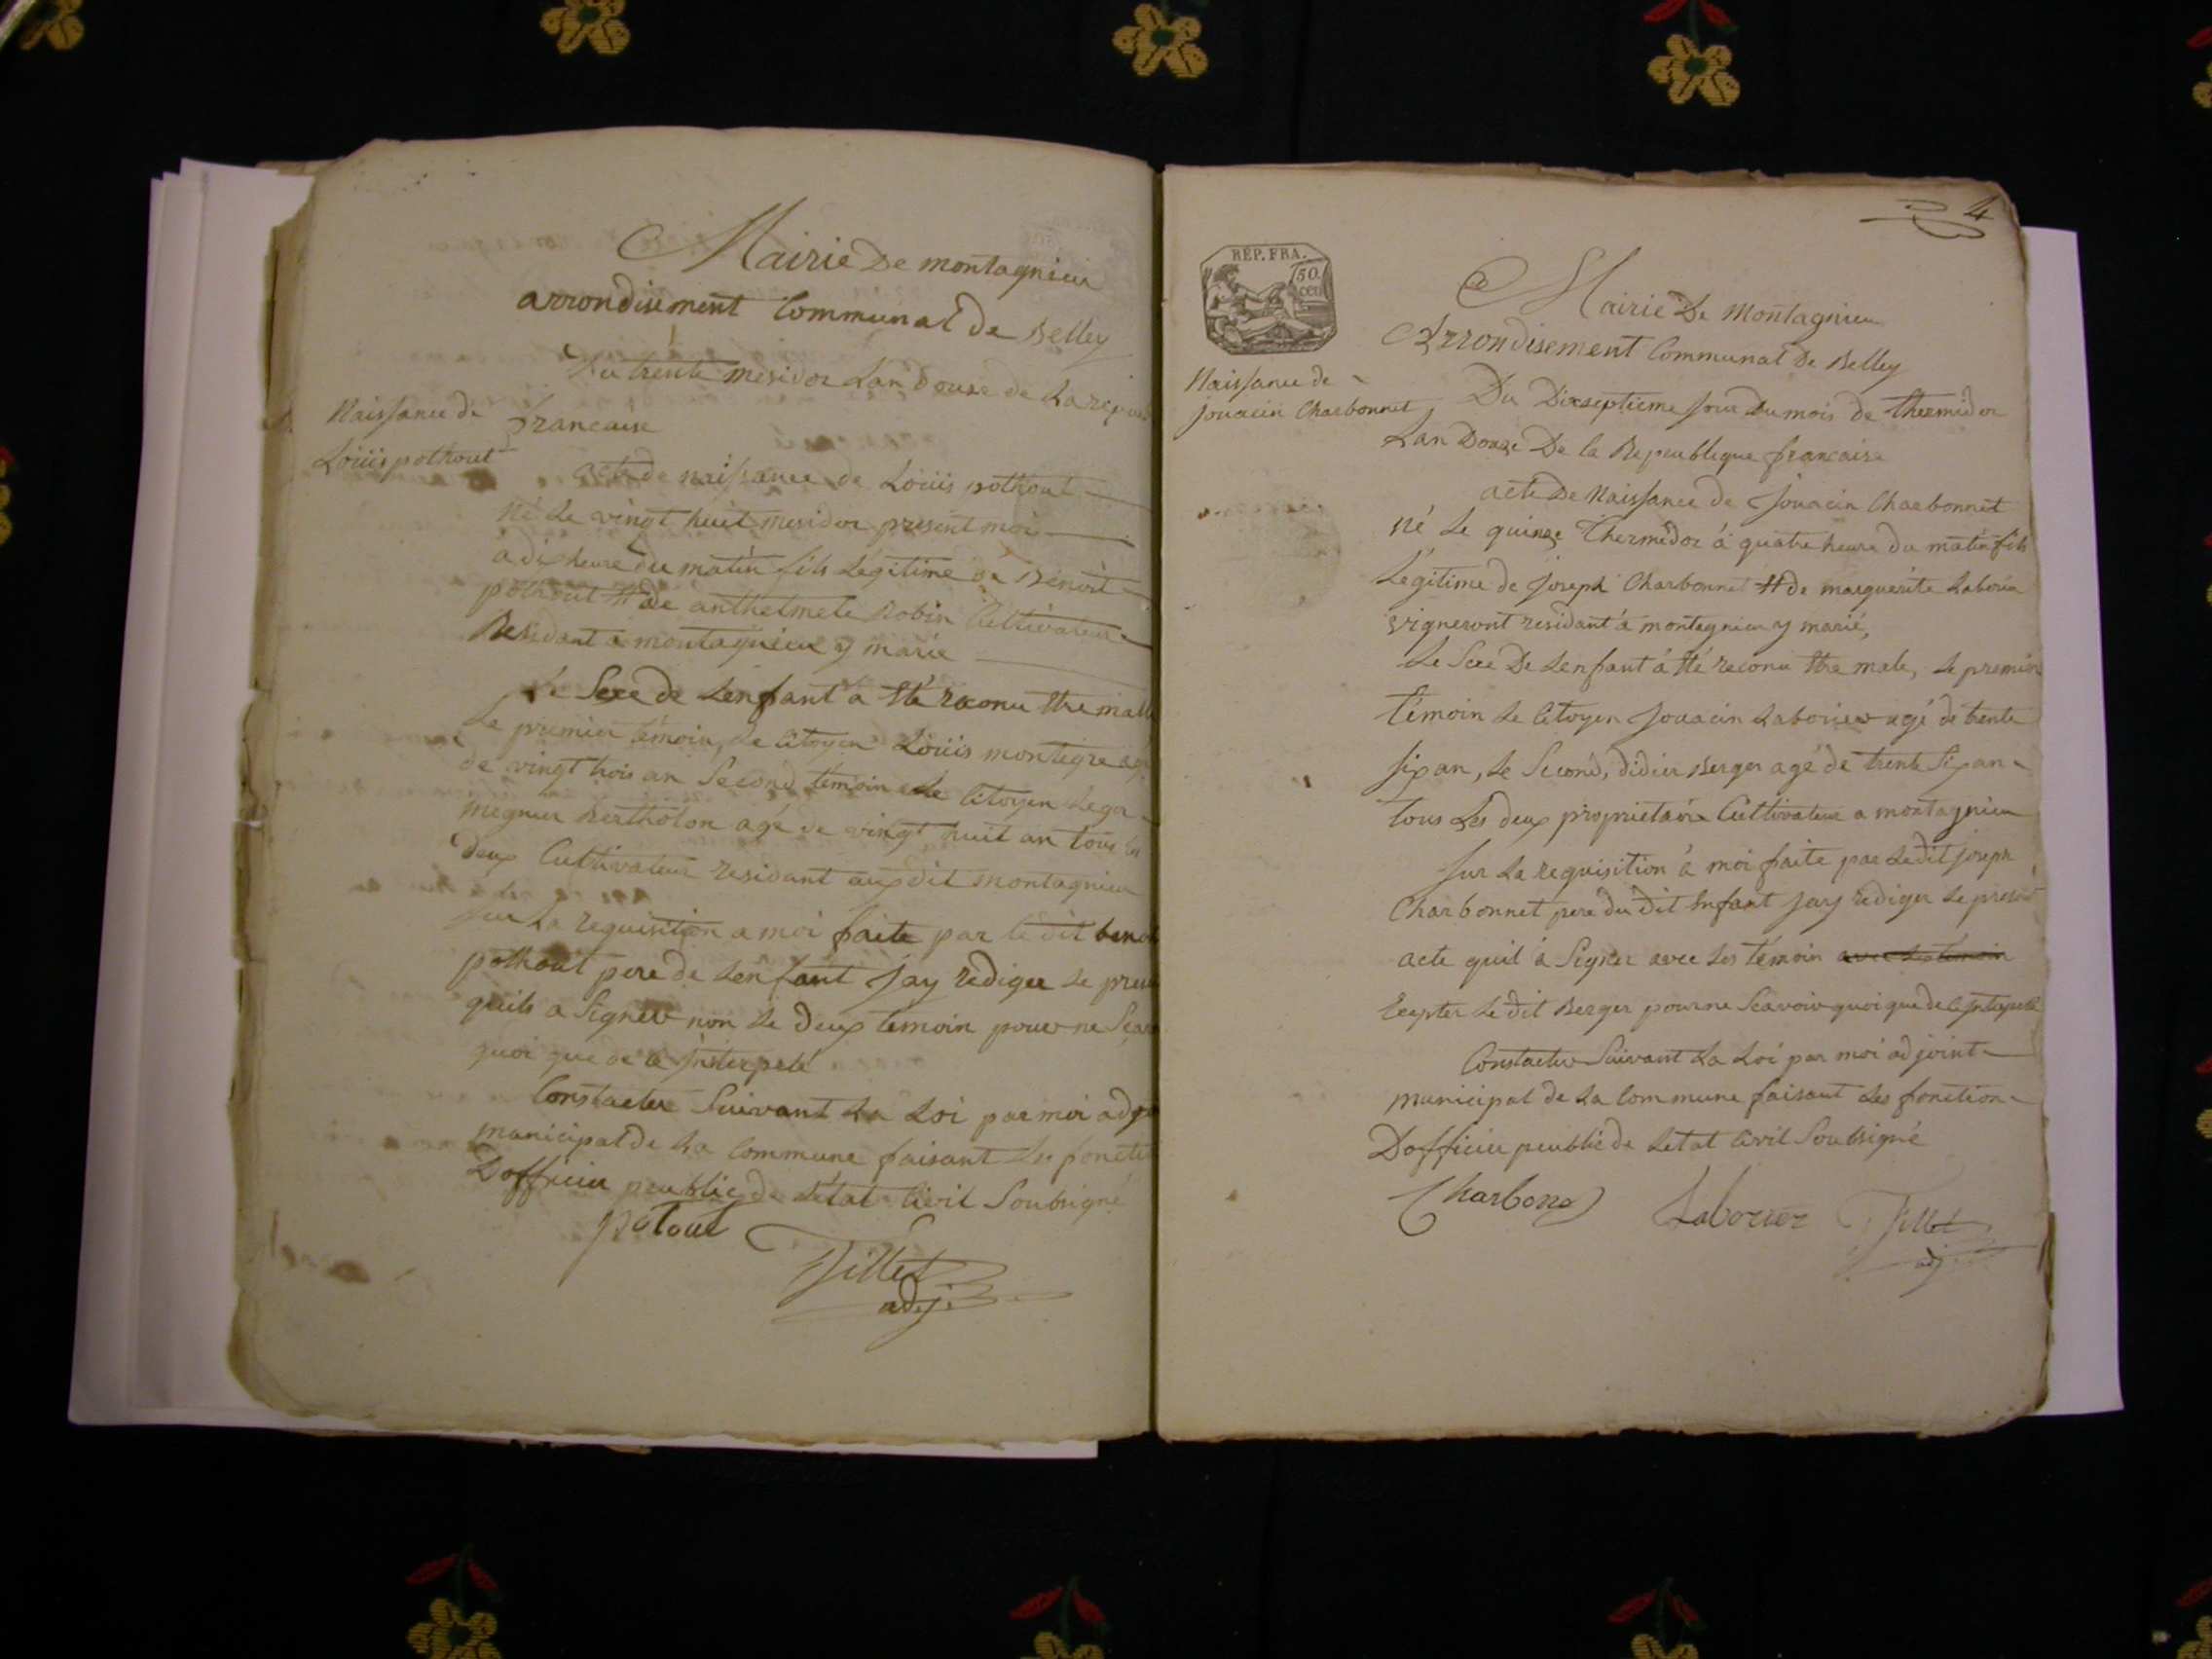 Mairie De montagnieu
arrondisement Communal de Belley
Du trente mesidor Lan douze de La repub
Naissance de
Louis pothout
francaise
acte de naissance de Louis pothout
né Le vingt huit mesidor present moi
à dix heure du matin fils Legitime de Benoit
pothout & de anthelmete Robin Cultivateur
Residant a montagnieu y marié
Le Sexe de Lenfant a été reconu être male
Le premier témoin, Le Citoyen Louis montegre agé
de vingt trois an Second témoin Le Citoyen
Bertholon agé de vingt huit an tous les
deux Cultivateur residant audit montagnieu
Sur La requisition a moi faite par le dit benoit
pothout pere de Lenfant Jay rediger Le present
quils a Signer non Le deux temoin pour ne Scavoir
quoi que de ce Interpelé
Constater Suivant La Loi par moi adjoint
municipal de La Commune faisant Les fonction
Dofficier peublic de Létat Civil Soubsigné
potout
Tillet
adj.
4
RÉP. FRA.
50.
cen
Mairie De Montagnieu
Arrondisement Communal De Belley
Naissance de
Jouacin Charbonnet
Du Dixseptieme Jour Du mois de thermidor
Lan Douze De la Republeque francaise
acte De Naissance de Jouacin Charbonnet
né Le quinze Thermidor à quatre heure du matin fils
Légitime de Joseph Charbonnet & de marguerite Laborier
vigneront residant à montagnieu y marié,
Le Sexe De Lenfant à été reconu être male, Le premier
témoin Le Citoyen Jouacin Laborier agé de trente
six an, Le Second, didier Berger agé de trente Six an
tous Les deux proprietaire Cultivateur a montagnieu
Sur La requisition à moi faite par Ledit Joseph
Charbonnet pere du dit Enfant Jay rediger Le present
acte quil à Signer avec Les témoin avec Les témoin
Exepter Le dit Berger pour ne Scavoir quoi que de ce Interpelé
Constater Suivant La Loi par moi adjoint
municipal de La Commune faisant Les fonction
Dofficier peublic de Letat Civil Soubsigné
Charbonet
Laborier
Tillet
adj.